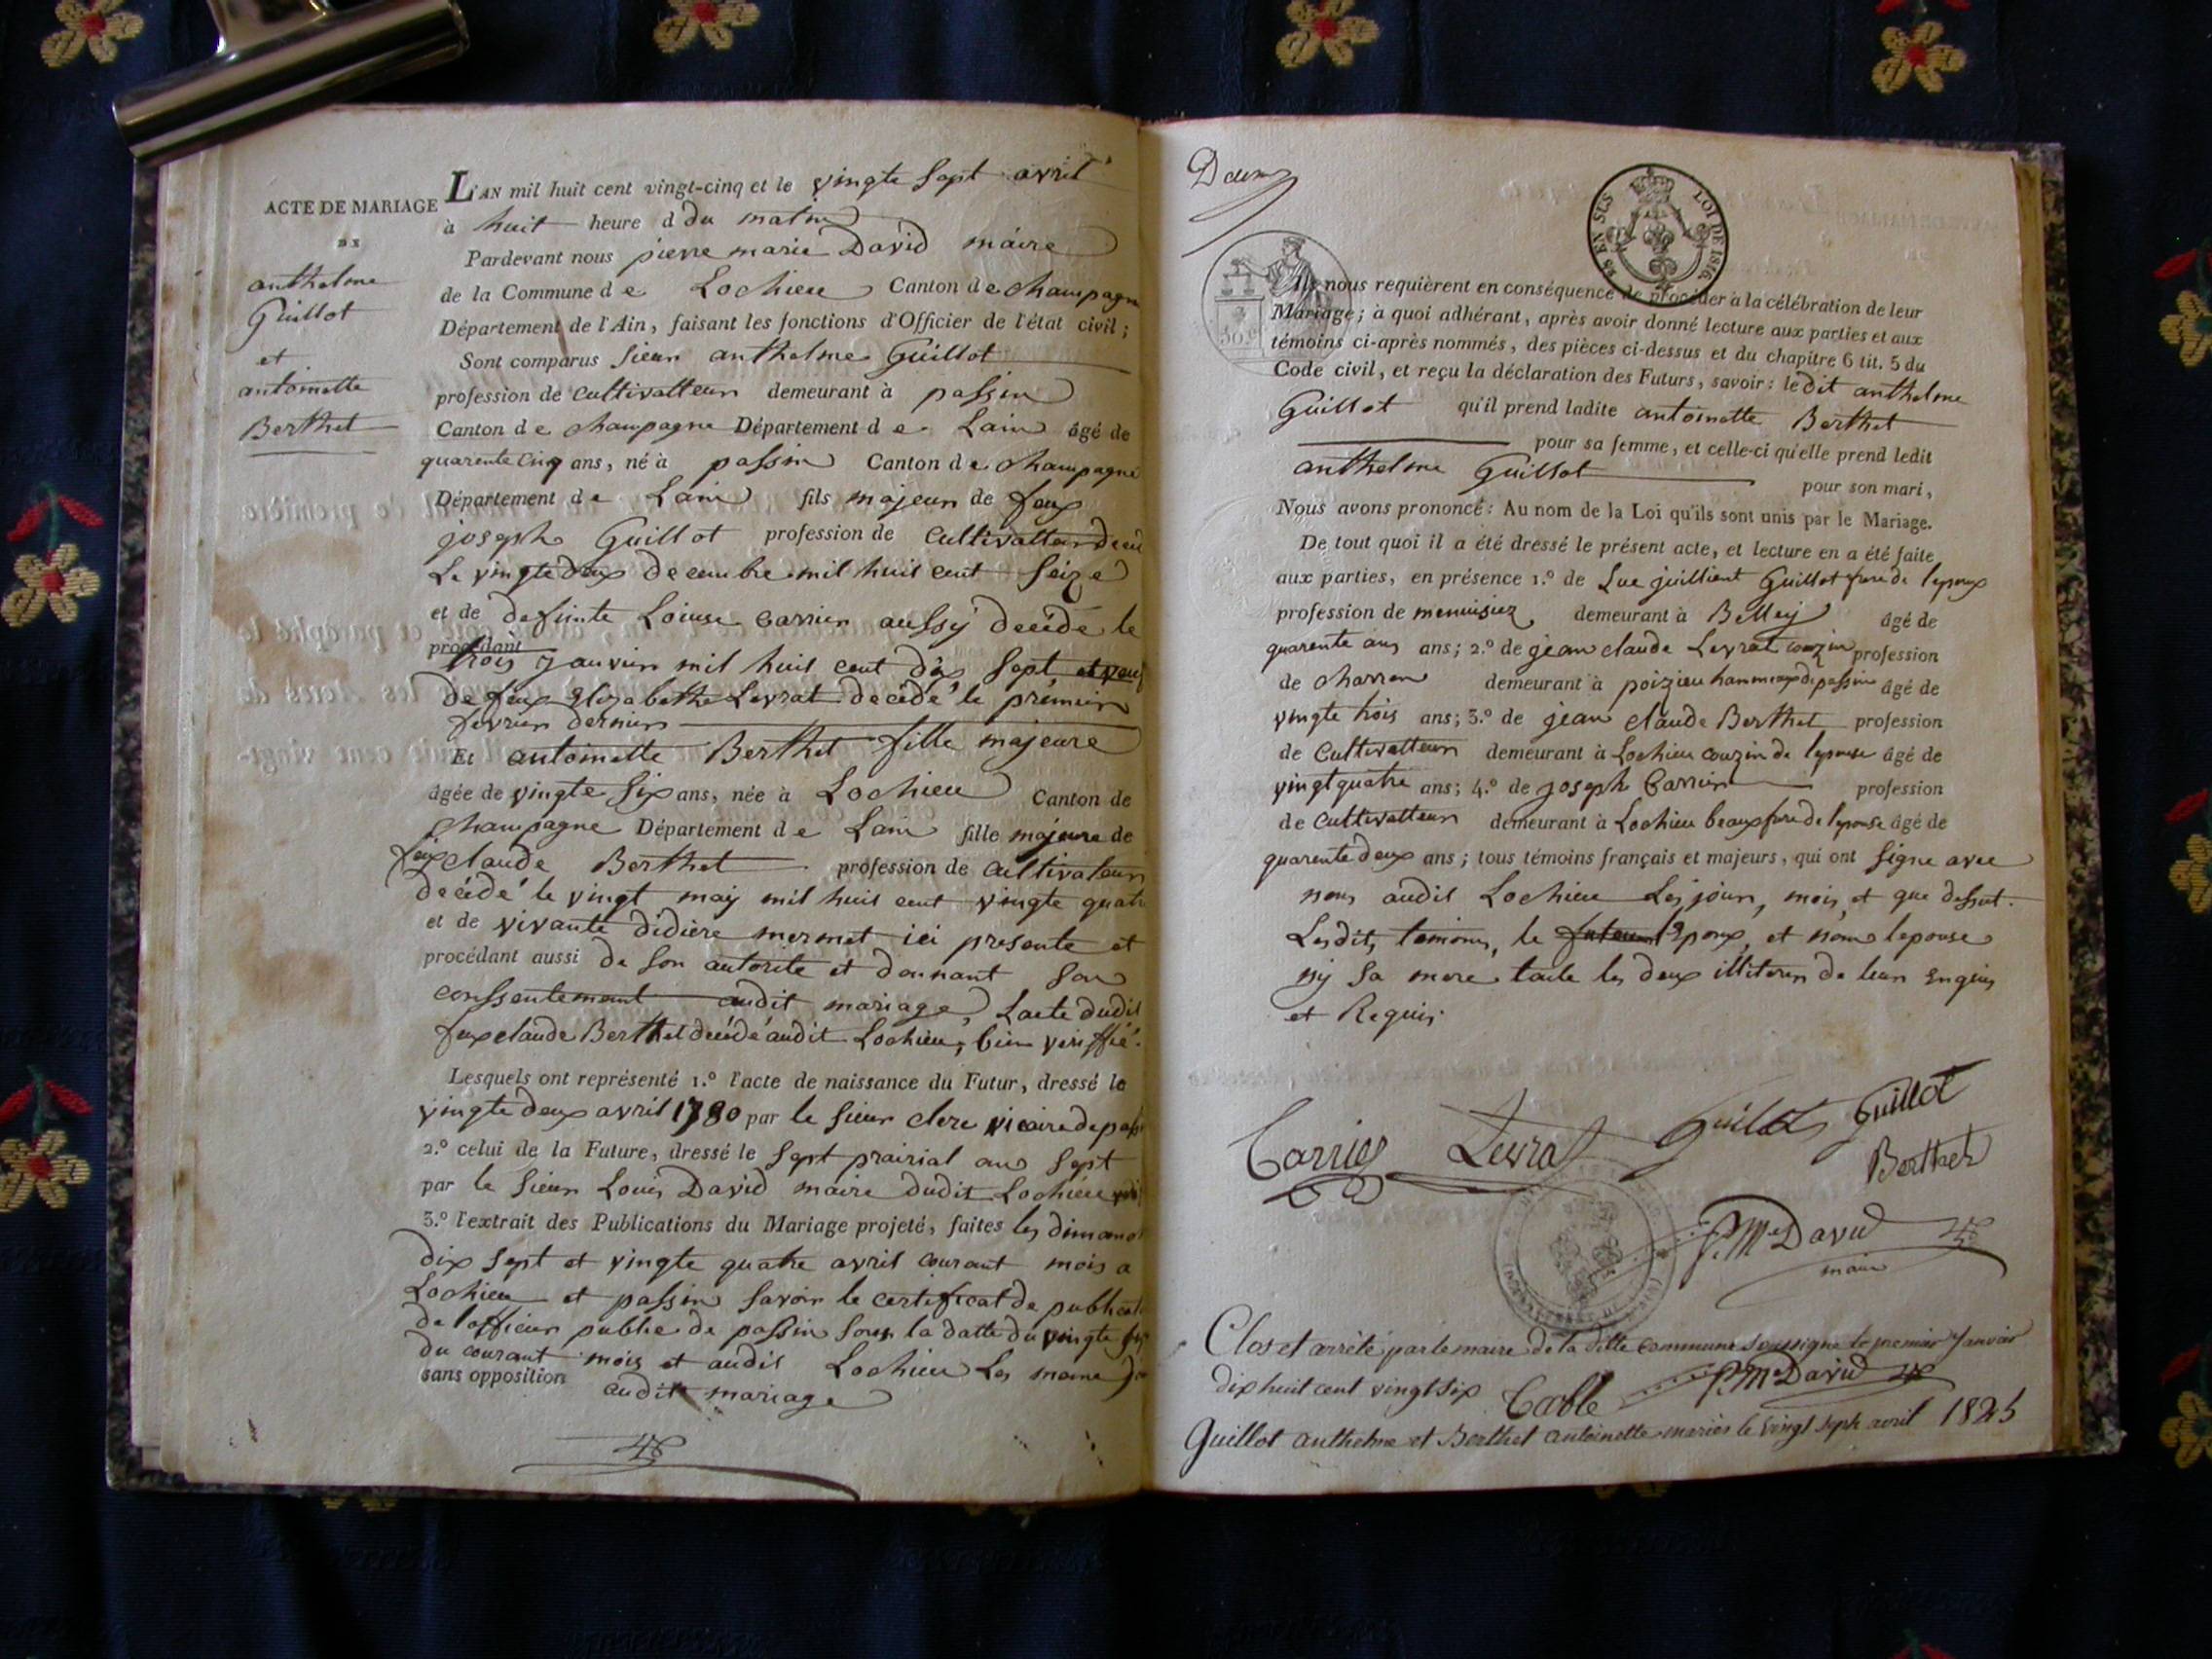 ACTE DE MARIAGE
DE
anthelme
Guillot
et
antoinette
Berthet
L'AN mil huit cent vingt-cinq et le vingte sept avril
à huit heure d du matin
Pardevant nous pierre marie David maire
de la Commune de Lochieu Canton de Champagne
Département de l'Ain, faisant les fonctions d'Officier de l'état civil;
Sont comparus Sieur anthelme Guillot
profession de Cultivatteur demeurant à passin
Canton de Champagne Département de Lain âgé de
quarente cinq ans, né à passin Canton de Champagne
Département de Lain fils majeur de feux
joseph Guillot profession de Cultivatteur
Le vingte deux decembre mil huit cent Seize
et de defunte Louise Carrier aussy decéde le
procédant
trois janvier mil huit cent dix Sept et veuf
de feux Elizabethe Levrat decédé le premier
fevrier dernier
Et antoinette Berthet fille majeure
âgée de vingte Six ans, née à Lochieu Canton de
Champagne Département de Lain fille majeure de
feux claude Berthet profession de Cultivateur
decédé le vingt may mil huit cent vingte quatre
et de vivante didière mermet ici presente et
procédant aussi de son autorite et donnant son
conssentement audit mariage, Lacte dudit
feux claude Berthet decédé audit Lochieu, bien veriffié.
Lesquels ont représenté 1.º l'acte de naissance du Futur, dressé le
vingte deux avril 1780 par le Sieur clerc vicaire de
2.º celui de la Future, dressé le Sept prairial an Sept
par le Sieur Louis David maire dudit Lochieu
3.º l'extrait des Publications du Mariage projeté, faites les
dix Sept et vingte quatre avril courant mois a
Lochieu et passin Savoir le certificat de
de lofficier public de passin Sous la datte du vingte
du courant mois et audit Lochieu Les meme
sans opposition audit mariage
Deux
EN SUS
LOI DE 1816
Ils nous requièrent en conséquence de procéder à la célébration de leur
Mariage; à quoi adhérant, après avoir donné lecture aux parties et aux
témoins ci-après nommés, des pièces ci-dessus et du chapitre 6 tit. 5 du
Code civil, et reçu la déclaration des Futurs, savoir: ledit anthelme
Guillot qu'il prend ladite antoinette Berthet
pour sa femme, et celle-ci qu'elle prend ledit
anthelme Guillot pour son mari,
Nous avons prononcé: Au nom de la Loi qu'ils sont unis par le Mariage.
De tout quoi il a été dressé le présent acte, et lecture en a été faite
aux parties, en présence 1.º de Luc Guillot frere de lepoux
profession de menuisier demeurant à Belley âgé de
quarente ans ans; 2.º de jean claude Levrat couzin profession
de Charron demeurant à poizieu hammeaux de passin âgé de
vingte trois ans; 3.º de jean claude Berthet profession
de Cultivatteur demeurant à Lochieu couzin de lepouse âgé de
vingt quatre ans; 4.º de joseph Carrier profession
de Cultivatteur demeurant à Lochieu beaux frere de lepouse âgé de
quarente deux ans; tous témoins français et majeurs, qui ont Signe avec
nous audit Lochieu Les jour, mois, et que dessut.
Lesdits temoins, le Epoux, et nom lepouse
ny sa mere les deux illiterer de leur Enquis
et Requis.
Carrier Levrat Guillot Guillot
Berthet
P. Me David
maire
Clos et arrêté par le maire de la ditte Commune Soussigne le premier Janvier
dix huit cent vingt six P. Me David
Table
Guillot anthelme et Berthet antoinette mariés le vingt sept avril 1825